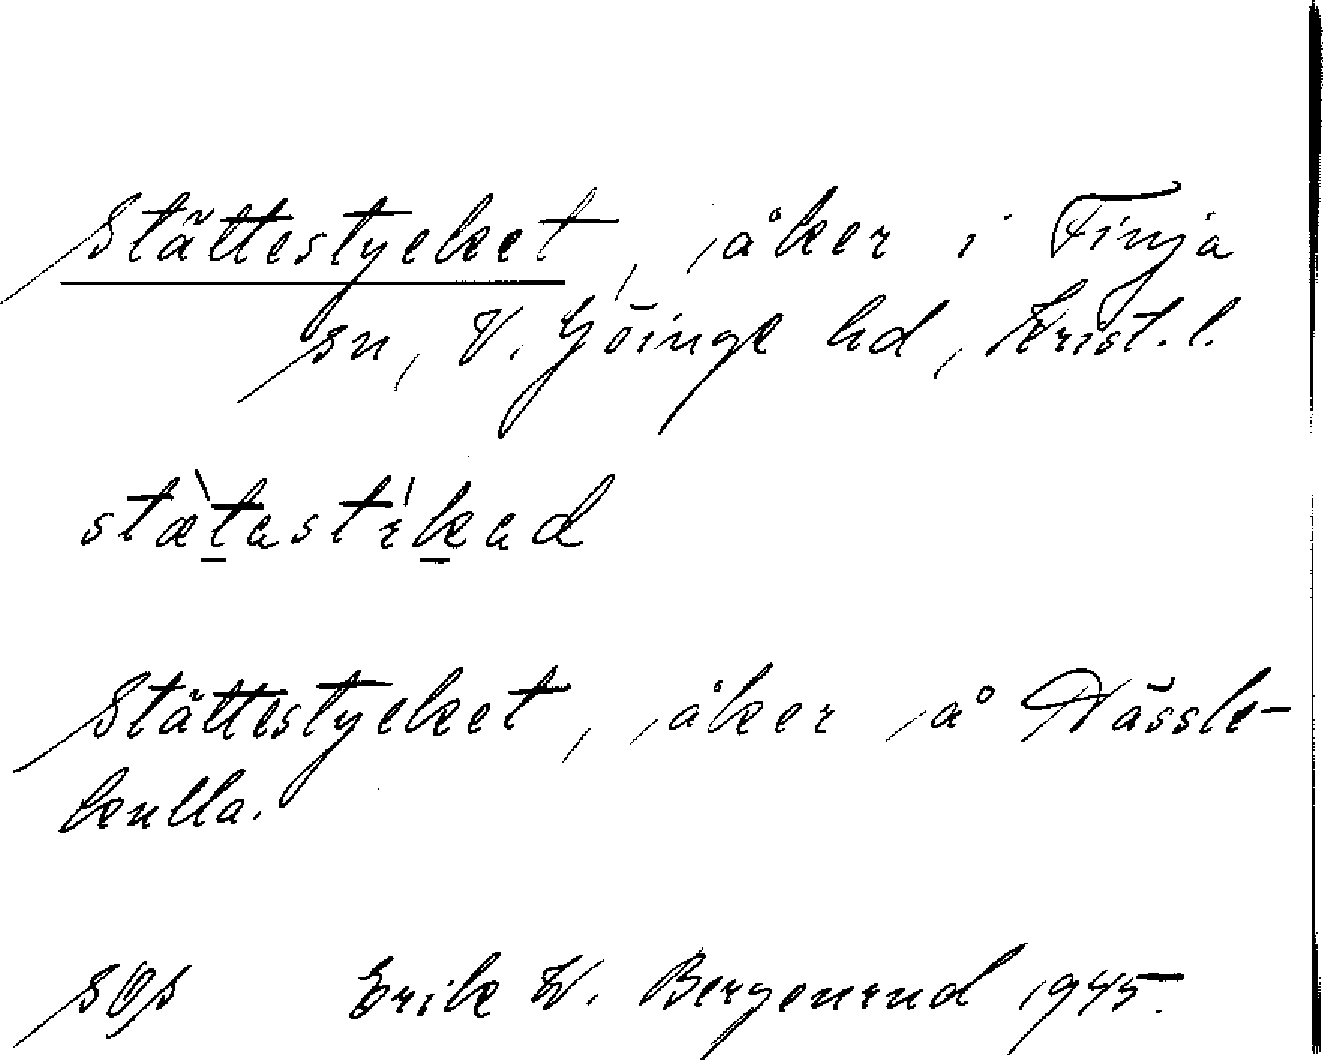 Stättestycket, åker i Finja
sn, V. Göinge hd, Krist. l.
stætastikad
Stättestycket, åker å Nässle-
kulla.
SOS Erik W. Bergenrud 1945.